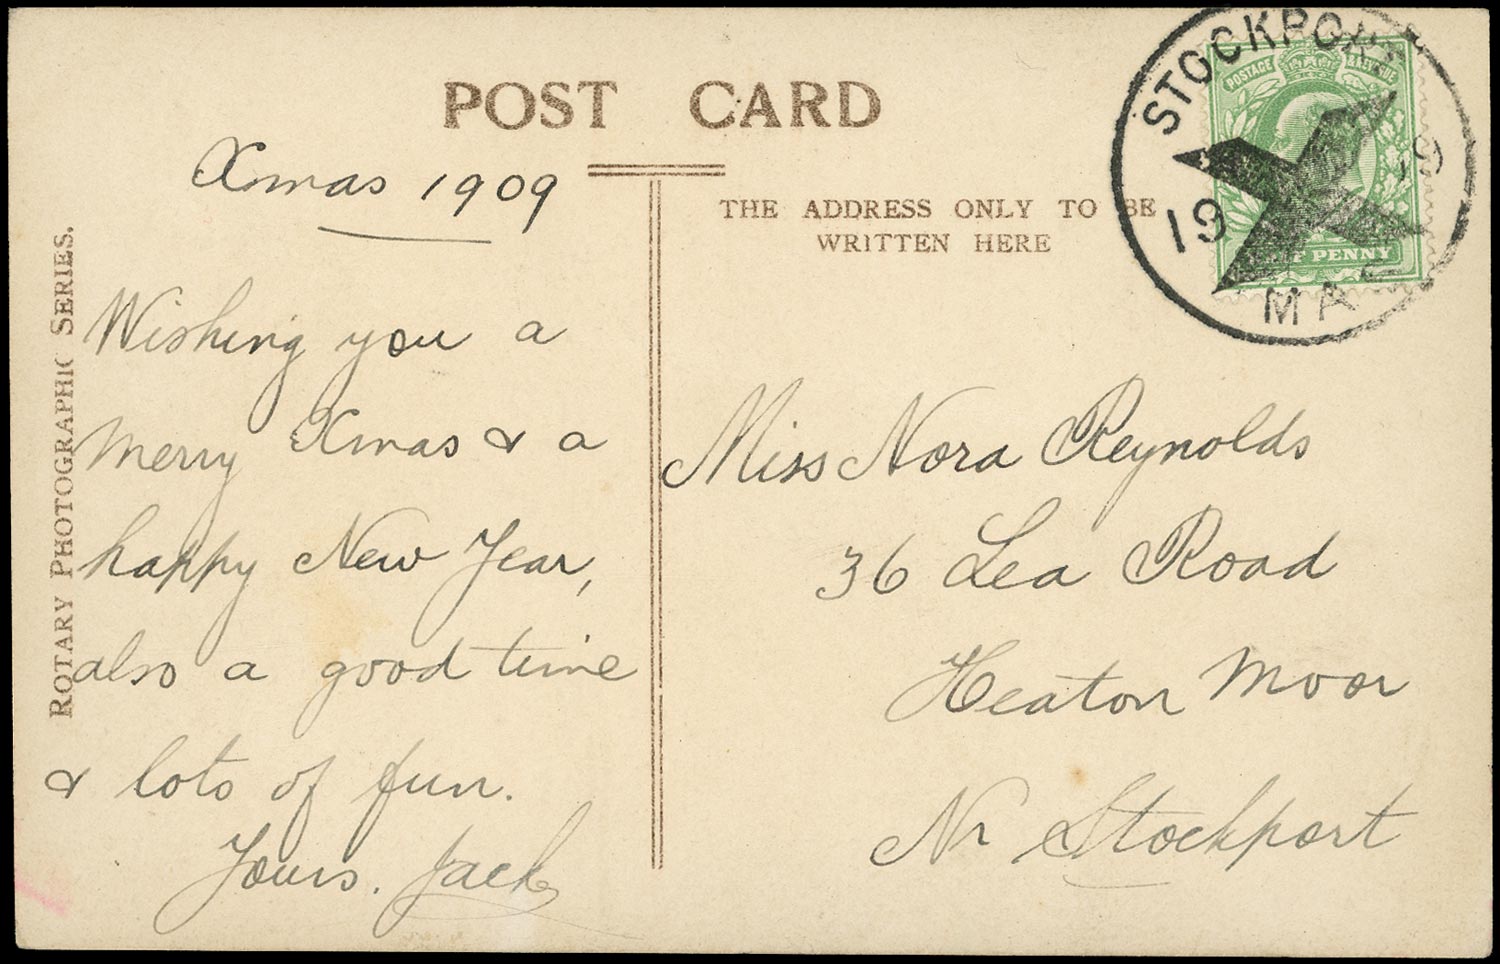 POST CARD
Xmas 1909
THE ADDRESS ONLY TO BE
WRITTEN HERE
ROTARY PHOTOGRAPHIC SERIES.
Wishing you a
Merry Xmas & a
happy New Year,
also a good time
& lots of fun.
Yours. Jack
Miss Nora Reynolds
36 Lea Road
Heaton Moor
Nr Stockport
STOCKPORT
19
POSTAGE & REVENUE
PENNY